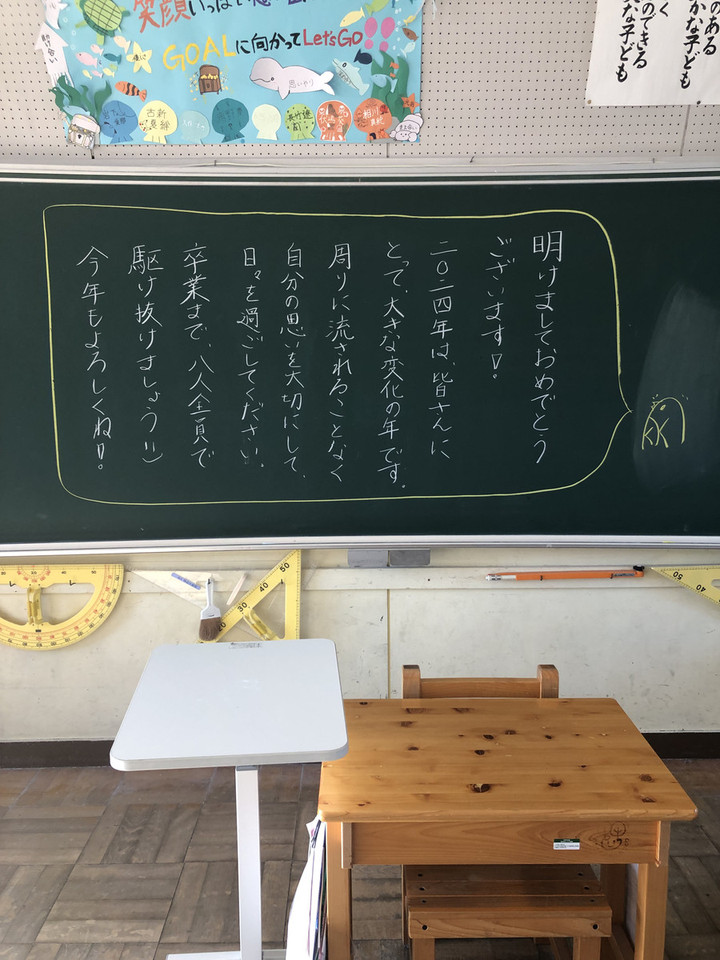 笑顔いっぱい
GOALに向かってLet'sGo!!
助け合い
思いやり
のある
かな子ども
く
のできる
な子ども
明けましておめでとう
ございます!。
二〇二四年は、皆さんに
とって、大きな変化の年です。
周りに流されることなく
自分の思いを大切にして、
日々を過ごしてください。
卒業まで、八人全員で
駆け抜けましょう!!)
今年もよろしくね!。
50
40
30
20
50
40